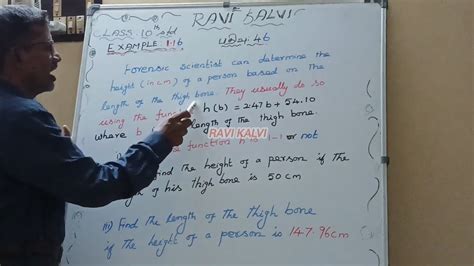 RAVI KALVI
CLASS 10th std
EXAMPLE 1.16
Forensic scientist can determine the
height (in cm) of a person based on the
length of the thigh bone. They usually do so
using the func h(b) = 2.47b + 54.10
where b length of the thigh bone.
RAVI KALVI
the function h is 1-1 or not
find the height of a person if the
length of his thigh bone is 50 cm
iii) Find the length of the thigh bone
if the height of a person is 147.96cm